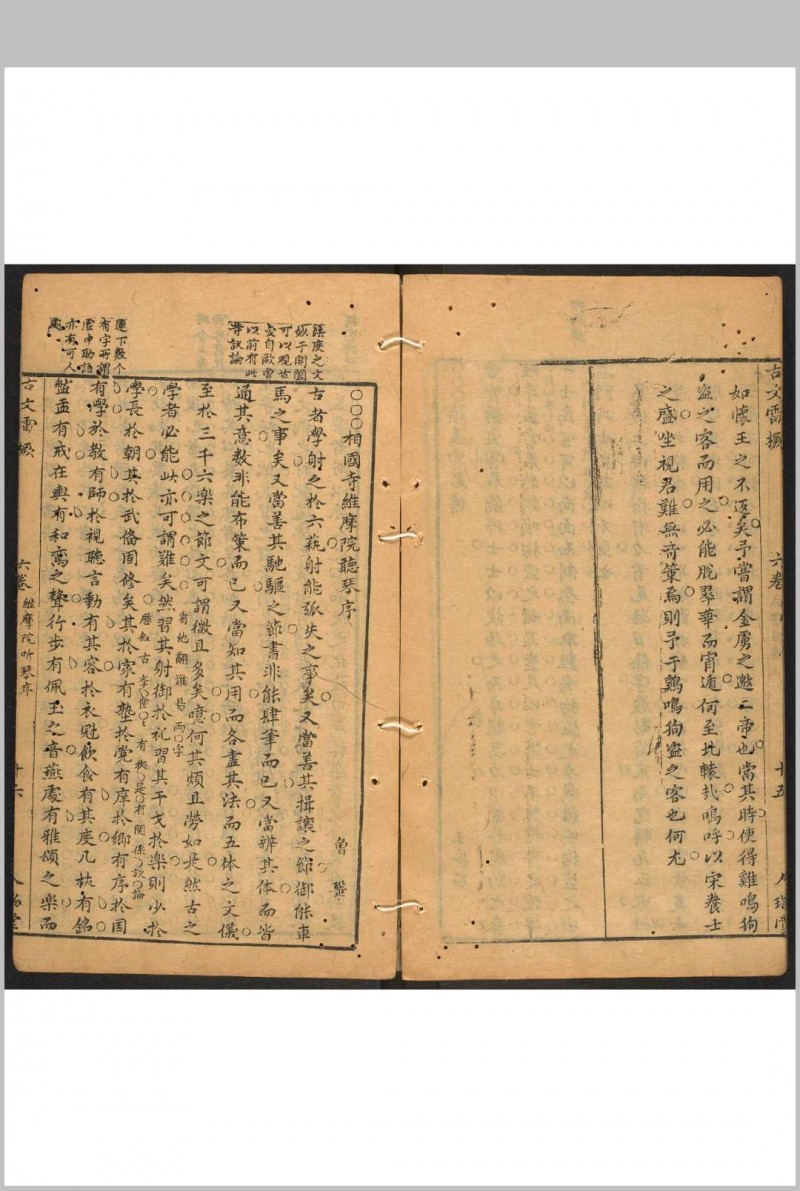 古文雷橛
六卷
十五
如懷王之不返矣予嘗謂金虜之邀二帝也當其時使得雞鳴狗
盜之客而用之必能脫翠華而宵遁何至北轅哉嗚呼以宋養士
之盛坐視君難無奇策焉則予于鷄鳴狗盜之客也何尤
○○○相國寺維摩院聽琴序
曾鞏
古者學射之於六藝射能弧矢之事矣又當善其揖讓之節御能車
馬之事矣又當善其馳驅之節書非能肆筆而已又當辨其体而皆
通其意数非能布策而已又當知其用而各盡其法而五体之文儀
至於三千六樂之節文可謂微且多矣噫何其煩且勞如是然古之
學者必能此亦可謂難矣然習其射御於礼習其干戈於樂則少於
學長於朝其於武備固修矣其於家有塾於党有庠於鄉有序於国
有學於教有師於視聽言動有其容於衣冠飲食有其度几杖有銘
盤盂有戒在輿有和鸞之聲行步有佩玉之音燕處有雅頌之樂而
有○関○係○議○論
以前有此
等議論
運下数个
有字所謂
古文雷橛
六卷
維摩院听琴序
十六